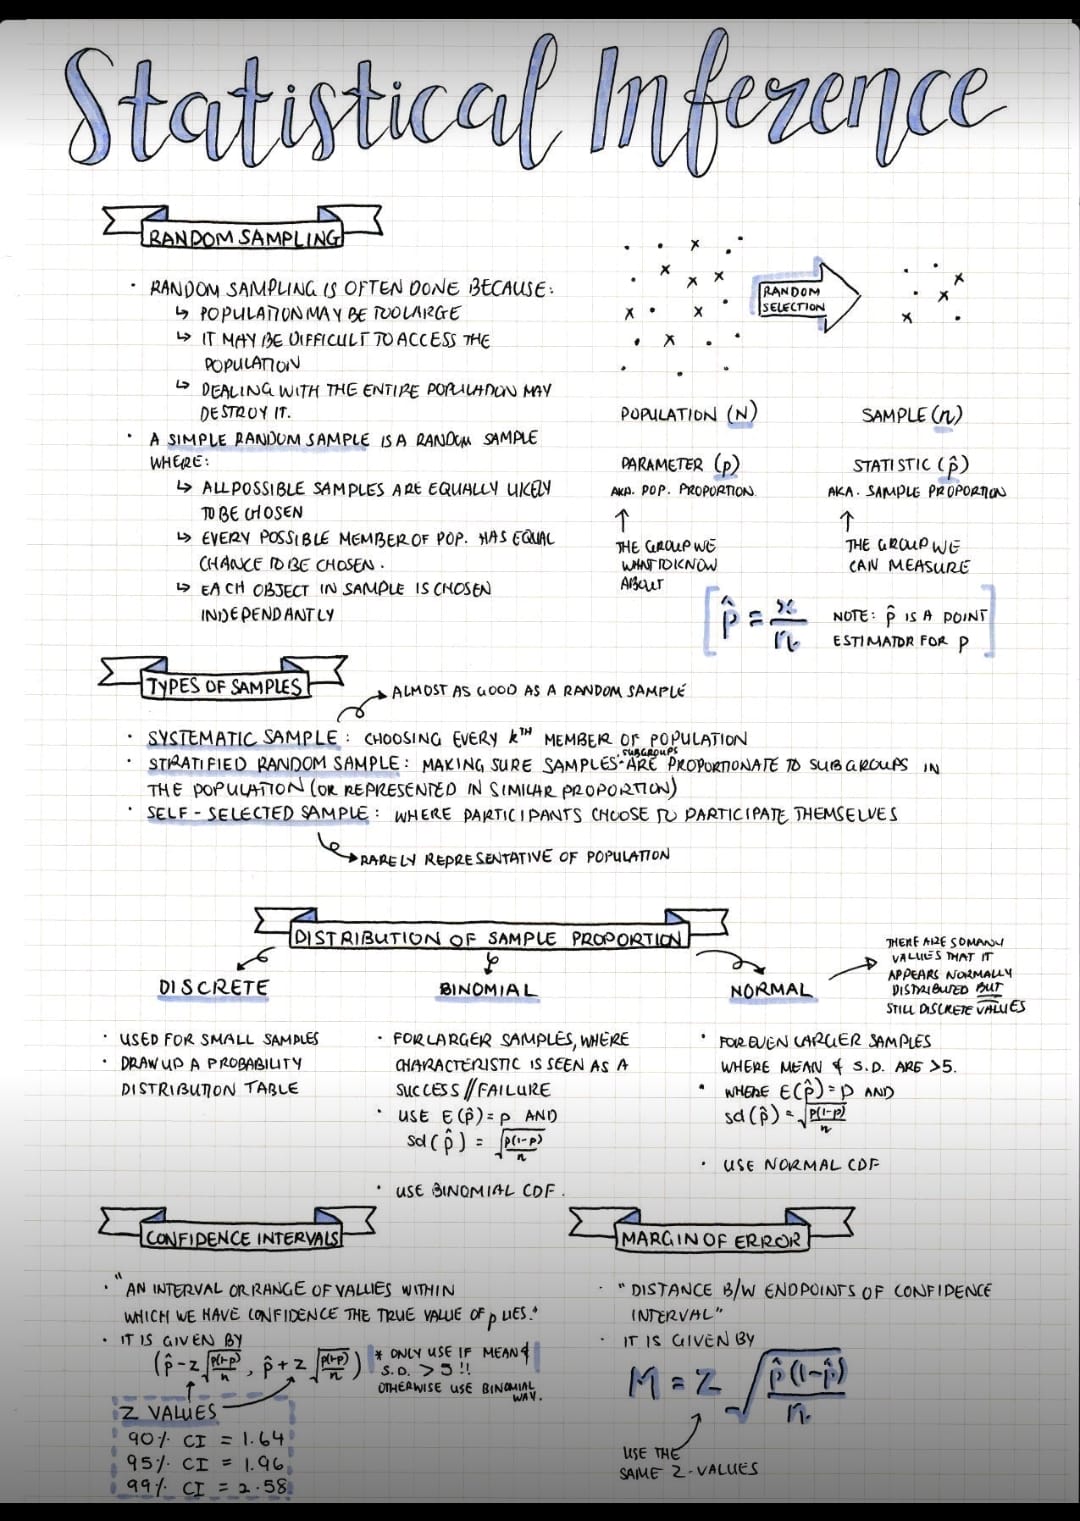 Statistical Inference
RANDOM SAMPLING
· RANDOM SAMPLING IS OFTEN DONE BECAUSE:
↳ POPULATION MAY BE TOO LARGE
↳ IT MAY BE DIFFICULT TO ACCESS THE
POPULATION
↳ DEALING WITH THE ENTIRE POPULATION MAY
DESTROY IT.
· A SIMPLE RANDOM SAMPLE IS A RANDOM SAMPLE
WHERE:
↳ ALL POSSIBLE SAMPLES ARE EQUALLY LIKELY
TO BE CHOSEN
↳ EVERY POSSIBLE MEMBER OF POP. HAS EQUAL
CHANCE TO BE CHOSEN.
↳ EACH OBJECT IN SAMPLE IS CHOSEN
INDEPENDANTLY
RANDOM
SELECTION
POPULATION (N)
PARAMETER (p)
AKA. POP. PROPORTION.
↑
THE GROUP WE
WANT TO KNOW
ABOUT
SAMPLE (n)
STATISTIC (p̂)
AKA. SAMPLE PROPORTION
↑
THE GROUP WE
CAN MEASURE
[p̂ = x/n NOTE: p̂ IS A POINT
ESTIMATOR FOR p]
TYPES OF SAMPLES
ALMOST AS GOOD AS A RANDOM SAMPLE
· SYSTEMATIC SAMPLE: CHOOSING EVERY kTH MEMBER OF POPULATION
· STRATIFIED RANDOM SAMPLE: MAKING SURE SAMPLES' SUBGROUPS ARE PROPORTIONATE TO SUBGROUPS IN
THE POPULATION (OR REPRESENTED IN SIMILAR PROPORTION)
· SELF-SELECTED SAMPLE: WHERE PARTICIPANTS CHOOSE TO PARTICIPATE THEMSELVES
RARELY REPRESENTATIVE OF POPULATION
DISTRIBUTION OF SAMPLE PROPORTION
DISCRETE
· USED FOR SMALL SAMPLES
· DRAW UP A PROBABILITY
DISTRIBUTION TABLE
BINOMIAL
· FOR LARGER SAMPLES, WHERE
CHARACTERISTIC IS SEEN AS A
SUCCESS//FAILURE
· USE E(p̂) = p AND
sd(p̂) = √(p(1-p)/n)
· USE BINOMIAL CDF.
NORMAL
THERE ARE SO MANY
VALUES THAT IT
APPEARS NORMALLY
DISTRIBUTED BUT
STILL DISCRETE VALUES
· FOR EVEN LARGER SAMPLES
WHERE MEAN & S.D. ARE >5.
· WHERE E(p̂) = p AND
sd(p̂) = √(p(1-p)/n)
· USE NORMAL CDF
CONFIDENCE INTERVALS
· "AN INTERVAL OR RANGE OF VALUES WITHIN
WHICH WE HAVE CONFIDENCE THE TRUE VALUE OF p LIES."
· IT IS GIVEN BY
(p̂ - z√(p(1-p)/n), p̂ + z√(p(1-p)/n))
* ONLY USE IF MEAN &
S.D. > 5!!
OTHERWISE USE BINOMIAL
WAY.
Z VALUES
90% CI = 1.64
95% CI = 1.96
99% CI = 2.58
MARGIN OF ERROR
· "DISTANCE B/W ENDPOINTS OF CONFIDENCE
INTERVAL"
· IT IS GIVEN BY
M = Z√(p̂(1-p̂)/n)
USE THE
SAME Z-VALUES